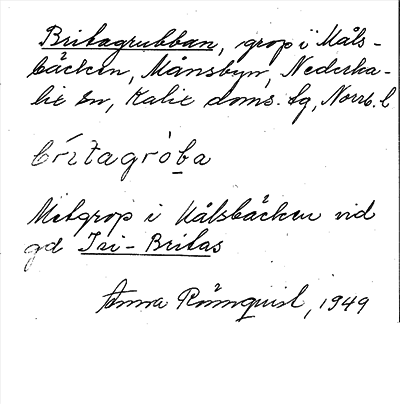 Britagrubban, grop i Måls-
bäcken, Månsbyn, Nederka-
lix sn, Kalix doms. lg, Norrb. l
brìtagròba
Metgrop i Målsbäcken vid
gd Isi-Britas
Anna Rönnquist, 1949